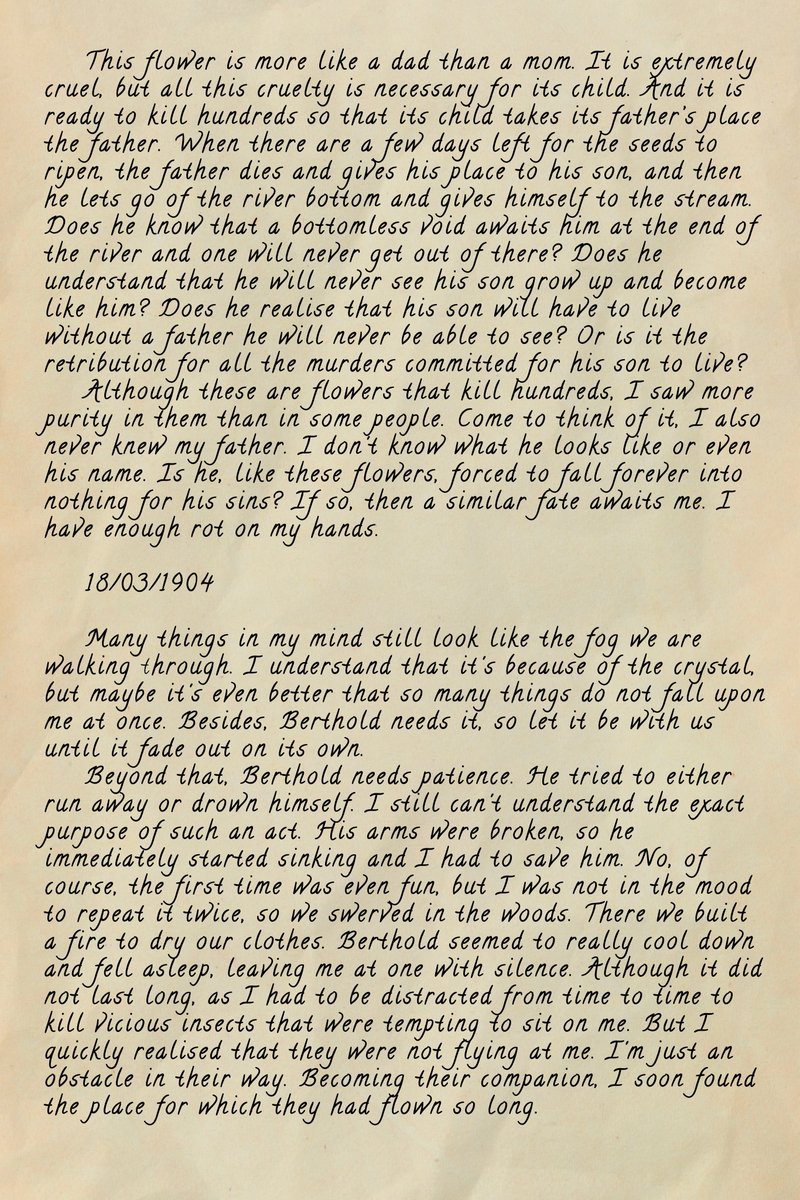 This flower is more like a dad than a mom. It is extremely
cruel, but all this cruelty is necessary for its child. And it is
ready to kill hundreds so that its child takes its father's place
the father. When there are a few days left for the seeds to
ripen, the father dies and gives his place to his son, and then
he lets go of the river bottom and gives himself to the stream.
Does he know that a bottomless void awaits him at the end of
the river and one will never get out of there? Does he
understand that he will never see his son grow up and become
like him? Does he realise that his son will have to live
without a father he will never be able to see? Or is it the
retribution for all the murders committed for his son to live?
Although these are flowers that kill hundreds, I saw more
purity in them than in some people. Come to think of it, I also
never knew my father. I don't know what he looks like or even
his name. Is he, like these flowers, forced to fall forever into
nothing for his sins? If so, then a similar fate awaits me. I
have enough rot on my hands.
18/03/1904
Many things in my mind still look like the fog we are
walking through. I understand that it's because of the crystal,
but maybe it's even better that so many things do not fall upon
me at once. Besides, Berthold needs it, so let it be with us
until it fade out on its own.
Beyond that, Berthold needs patience. He tried to either
run away or drown himself. I still can't understand the exact
purpose of such an act. His arms were broken, so he
immediately started sinking and I had to save him. No, of
course, the first time was even fun, but I was not in the mood
to repeat it twice, so we swerved in the woods. There we built
a fire to dry our clothes. Berthold seemed to really cool down
and fell asleep, leaving me at one with silence. Although it did
not last long, as I had to be distracted from time to time to
kill vicious insects that were tempting to sit on me. But I
quickly realised that they were not flying at me. I'm just an
obstacle in their way. Becoming their companion, I soon found
the place for which they had flown so long.